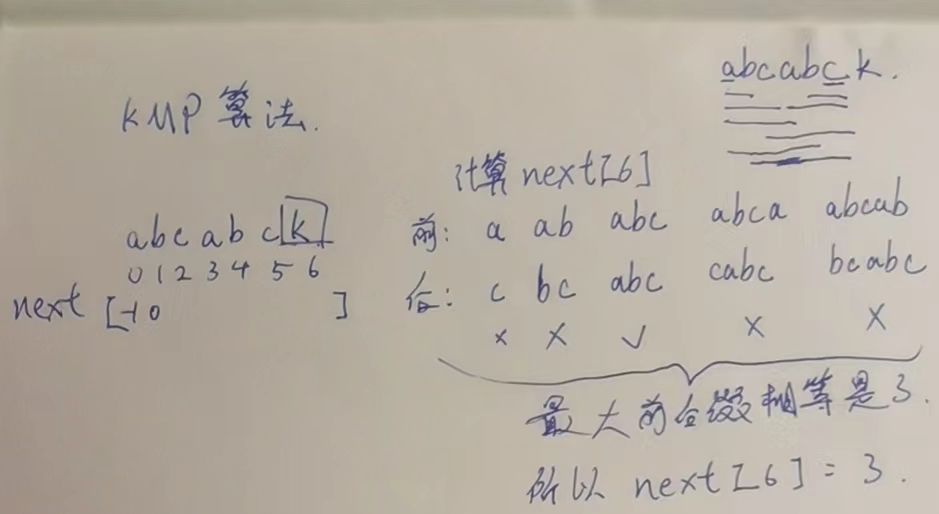 abcabck.
KMP算法.
计算next[6]
前: a ab abc abca abcab
后: c bc abc cabc bcabc
× × √ × ×
abcabck
0123456
next [-10 ]
最大前后缀相等是3.
所以 next[6] = 3.